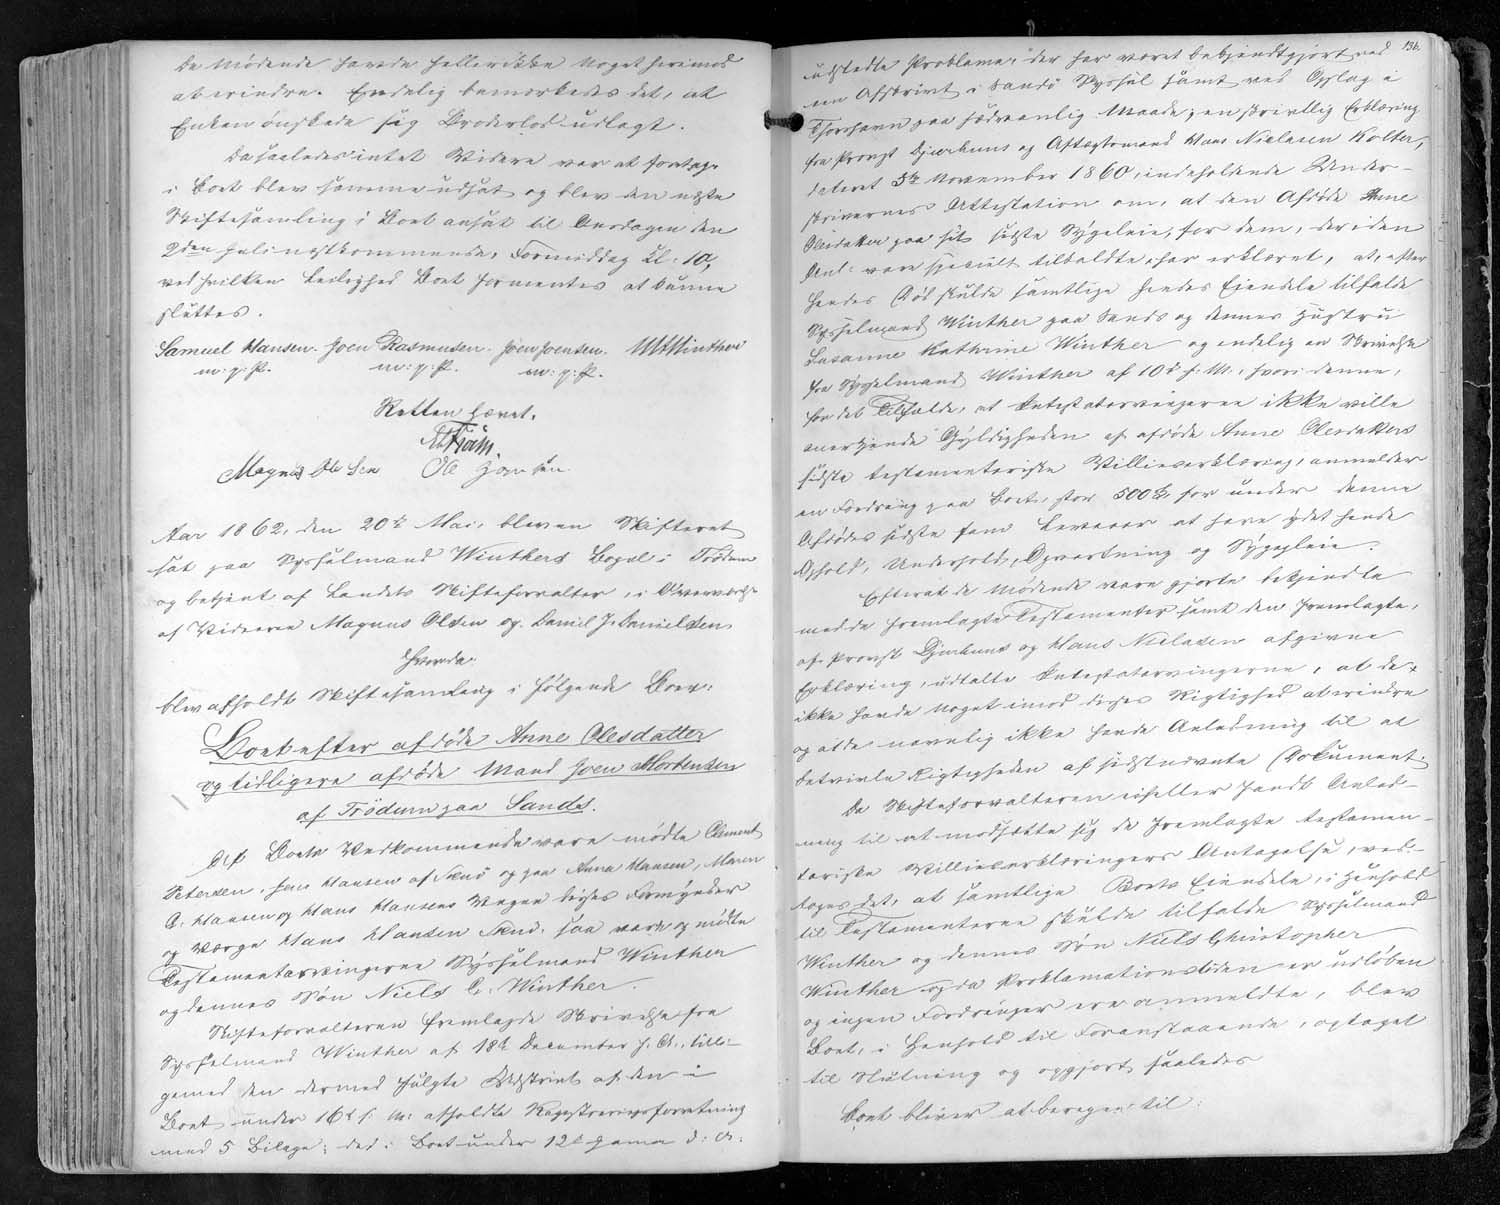 De Mødende havde hellerikke Noget herimod
at erindre. Endelig bemærkedes det, at
Enken ønskede sig Broderlod udlagt.
Da saaledes intet Videre var at foretage
i Boet blev samme udsat og blev den næste
Skiftesamling i Boet ansat til Onsdagen den
2den Juli næstkommende, Formiddag Kl: 10,
ved hvilken Leilighed Boet formentes at kunne
sluttes.
Samuel Hansen. Joen Rasmusen. Joen Joensen. Winther
m: p: P. m: p: P. m: p: P.
Retten hævet.
Magnus Olsen Ole Joensen
Aar 1862, den 20d Mai, blev en Skifteret
sat paa Sysselmand Winthers Bopæl i Trödum
og betjent af Landets Skifteforvalter, i Overværelse
af Vidnerne Magnus Olsen og Daniel J. Danielsen
Hvorda:
blev afholdt Skiftesamling i følgende Boer:
Boet efter afdøde Anne Olesdatter
og tidligere afdøde Mand Joen Mortensen
af Trödum paa Sandø.
Paa Boets Vedkommende vare mødte Clement
Petersen, Jens Hansen af Skuø og paa Anna Hansen, Maren
C. Hansen og Hans Hansens Vegne disses Formynder
og Værge Hans Hansen Skuø, saa vare og mødte
Testamentarvingerne Sysselmand Winther
og dennes Søn Niels C. Winther.
Skifteforvalteren fremlagde Skrivelse fra
Sysselmand Winther af 18d December f. A., tilli-
gemed den dermed fulgte Udskrivt af den i
Boet under 16d s. M. afholdte Registreringsforretning
med 5 Bilage; det i Boet under 12t Januar d: A:
136.
udstedte Proklama, der har været bekjendtgjort ved
en Afskrivt i Sandø Syssel samt ved Opslag i
Thorshavn paa sædvanlig Maade; en skrivtlig Erklæring
fra Provst Djurhuus og Aftægtsmand Hans Nielsen Kolter,
dateret 5te November 1860, indeholdende Under-
skrivernes Attestation om, at den Afdøde Anne
Olesdatter paa sit sidste Sygeleie, for dem, der i den
Anl: vare specielt tilkaldte, har erklæret, at, efter
hendes Død skulde samtlige hendes Eiendele tilfalde
Sysselmand Winther paa Sandø og dennes Hustru
Susanne Kathrine Winther og endelig en Skrivelse
fra Sysselmand Winther af 10d s: M., hvori denne,
for det Tilfælde, at Intestatarvingerne ikke ville
anerkjende Gyldigheden af afdøde Anne Olesdatters
sidste testamentariske Villieserklæring, anmelder
en Fordring paa Boet, stor 500 rd, for under denne
Afdødes sidste fem Leveaar at have ydet hende
Ophold, Underhold, Opvartning og Sygepleie.
Efterat de Mødende vare gjorte bekjendte
med de fremlagte Testamenter samt den fremlagte,
af Provst Djurhuus og Hans Nielsen afgivne
Erklæring, udtalte Intestatarvingerne, at de
ikke havde Noget imod disses Rigtighed at erindre
og at de navnlig ikke havde Anledning til at
betvivle Rigtigheden af sidstnævnte Dokument.
Da Skifteforvalteren ei heller fandt Anled-
ning til at modsætte sig de fremlagte testamen-
tariske Villieserklæringers Antagelse, ved-
toges det, at samtlige Boets Eiendele, i Henhold
til Testamenterne skulde tilfalde Sysselmand
Winther og dennes Søn Niels Christopher
Winther og da Proklamationstiden er udløben
og ingen Fordringer ere anmeldte, blev
Boet, i Henhold til Foranstaaende, optaget
til Slutning og opgjort saaledes
Boet bliver at beregne til: